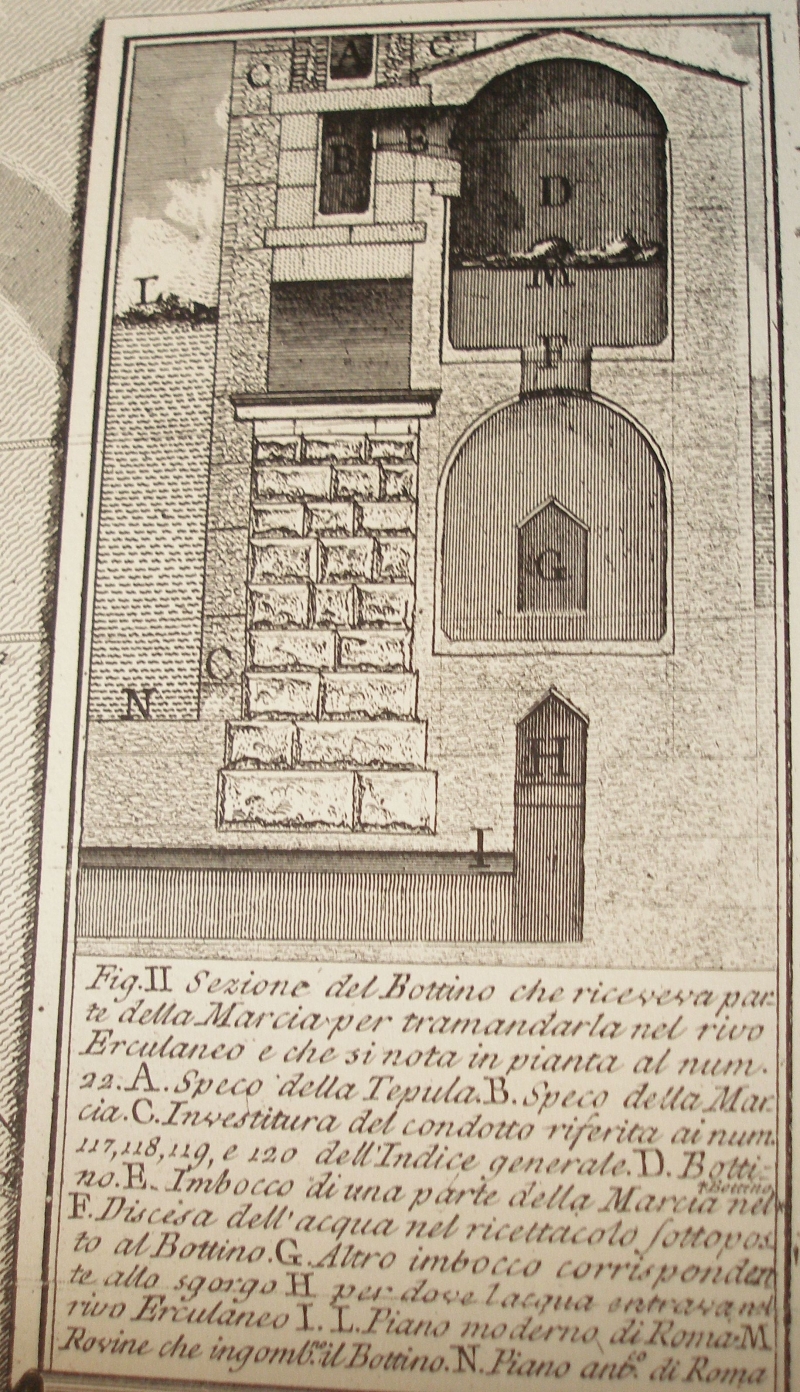 A
C
C
B
E
D
L
M
F
G
C
N
H
I
Fig. II Sezione del Bottino che riceveva par-
te della Marcia per tramandarla nel rivo
Erculaneo e che si nota in pianta al num.
22. A. Speco della Tepula. B. Speco della Mar-
cia. C. Investitura del condotto riferita ai num.
117, 118, 119, e 120 dell'Indice generale. D. Botti-
no. E. Imbocco di una parte della Marcia nel
+Bottino
F. Discesa dell'acqua nel ricettacolo sottopos-
to al Bottino. G. Altro imbocco corrisponden
te allo sgorgo H per dove l'acqua entrava nel
rivo Erculaneo I. L. Piano moderno di Roma. M
Rovine che ingomb.no il Bottino. N. Piano ant.co di Roma